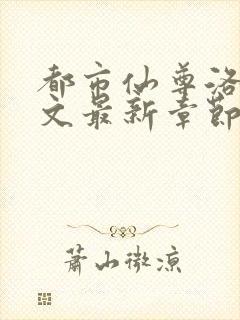 都市仙尊洛
文最新章節
萧山微凉